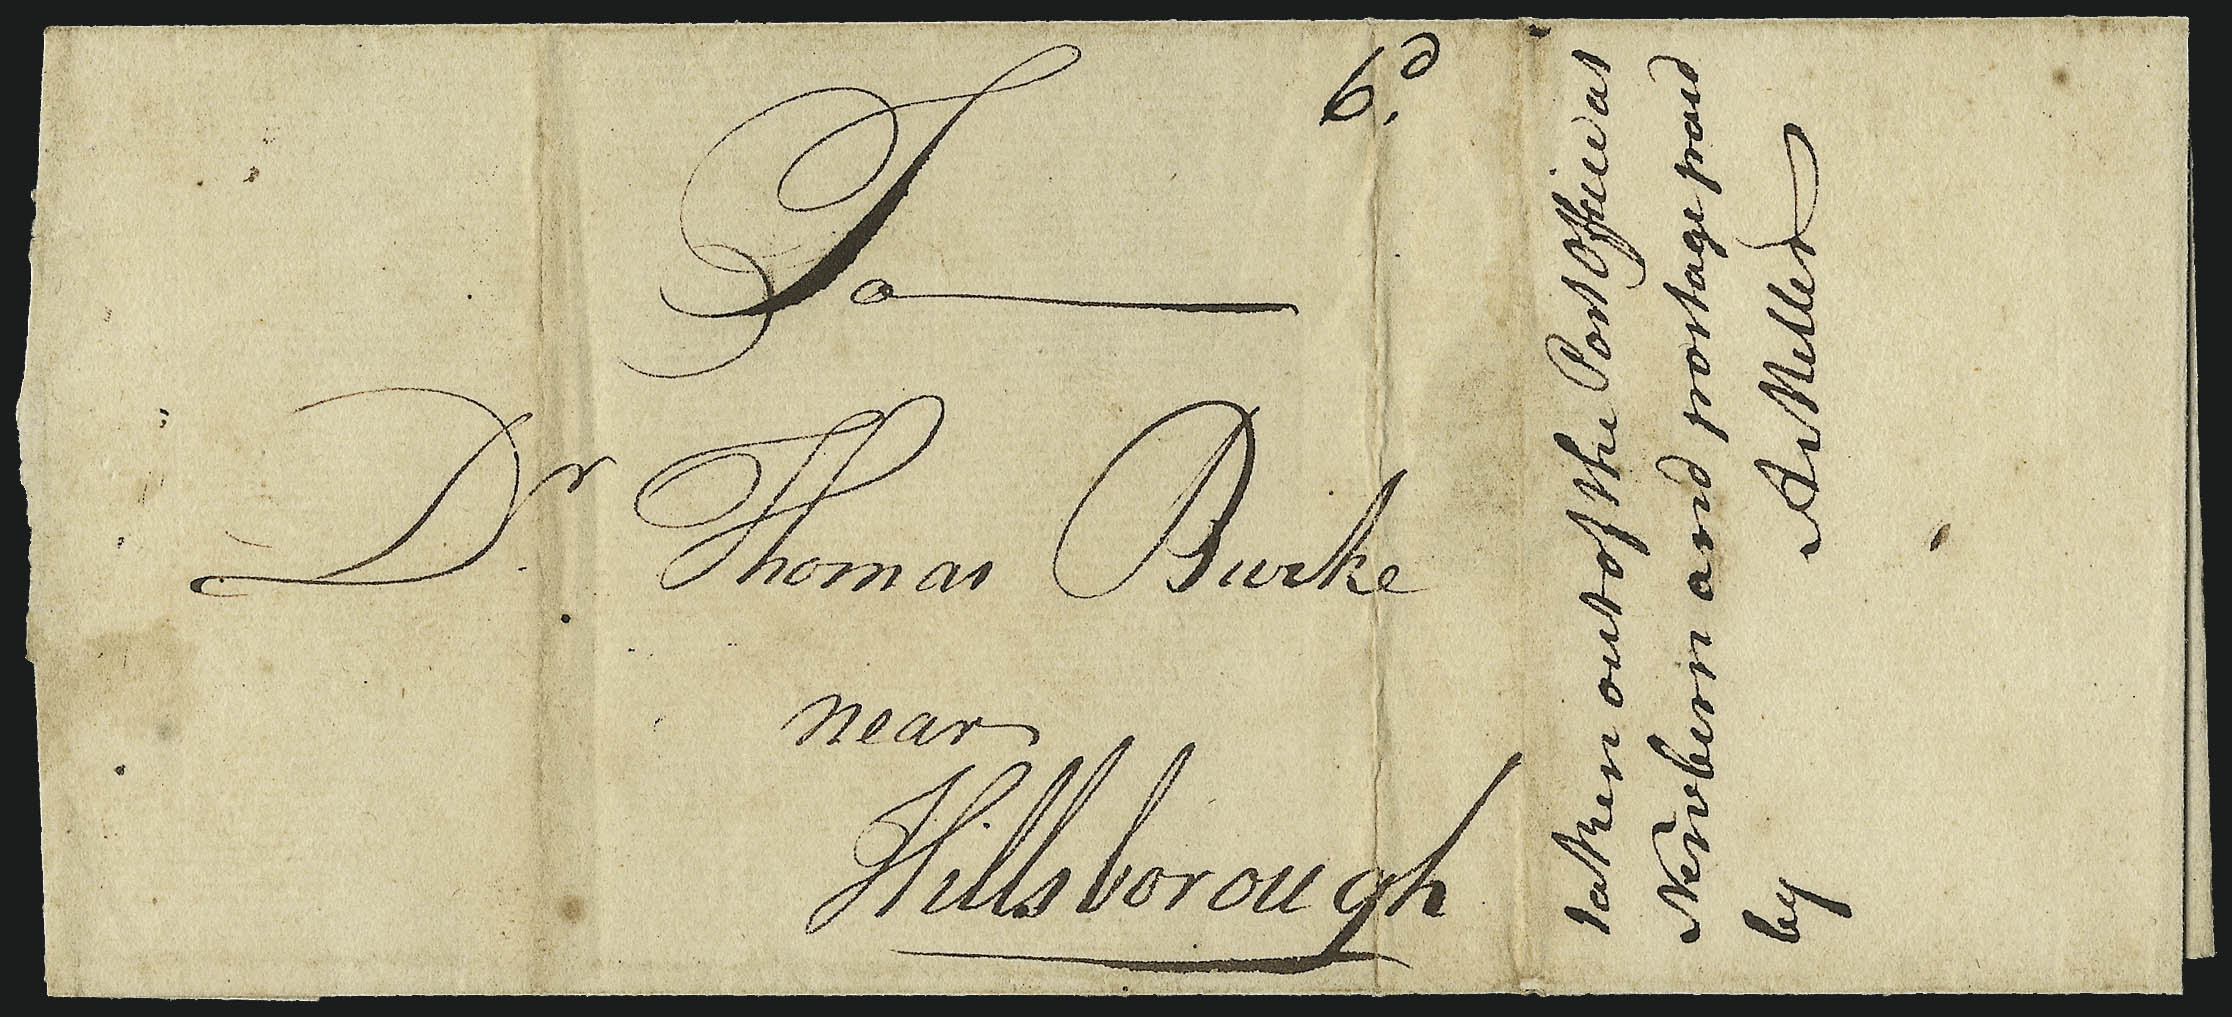 6.d
To
Dr. Thomas Burke
near
Hillsborough
taken out of the Post Office at
Newbern and postage paid
by A Miller